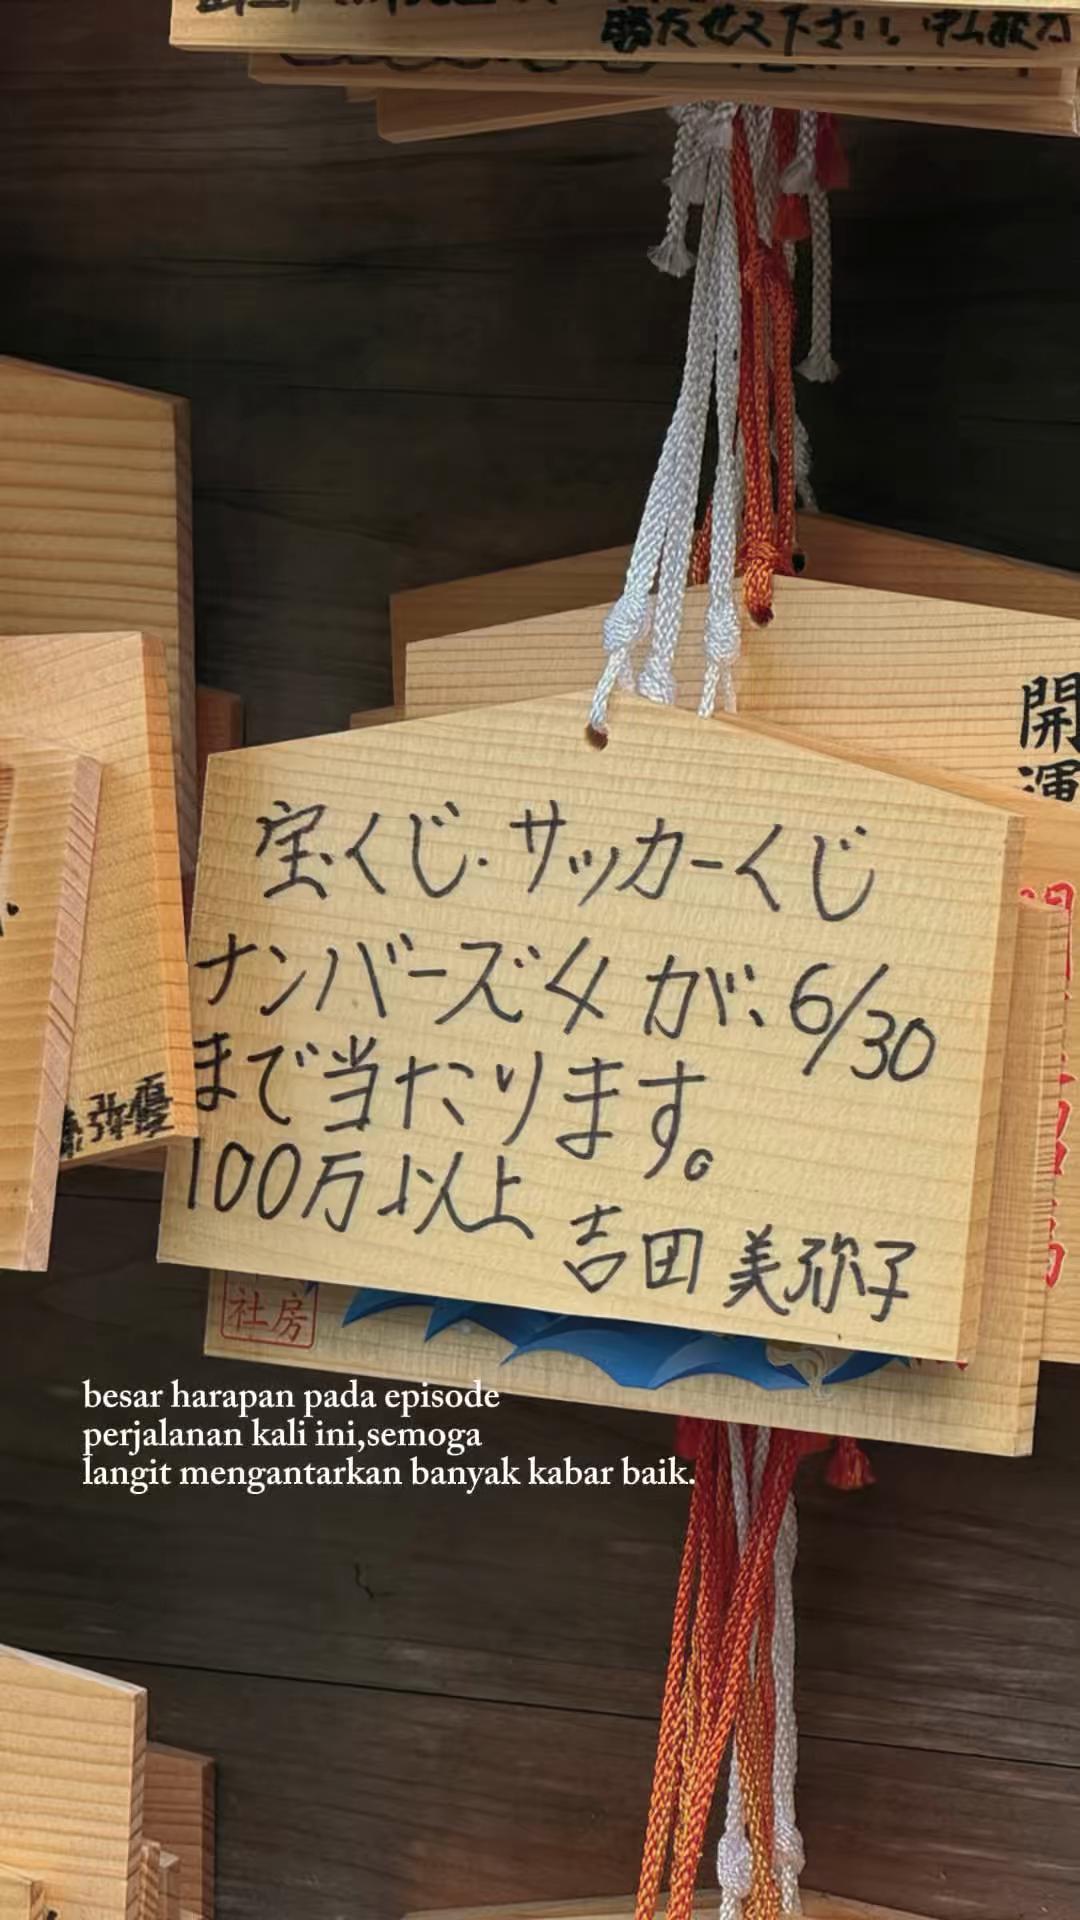 勝たせて下さい。
開運
宝くじ・サッカーくじ
ナンバーズ4が、6/30
まで当たります。
100万以上
吉田 美弥子
弥優
社房
besar harapan pada episode
perjalanan kali ini,semoga
langit mengantarkan banyak kabar baik.